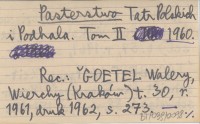 Pasterstwo Tatr Polskich
i Podhala. Tom II 1960.
Rec.: GOETEL Walery,
Wierchy (Kraków) t. 30, r.
1961, druk 1962, s. 273,